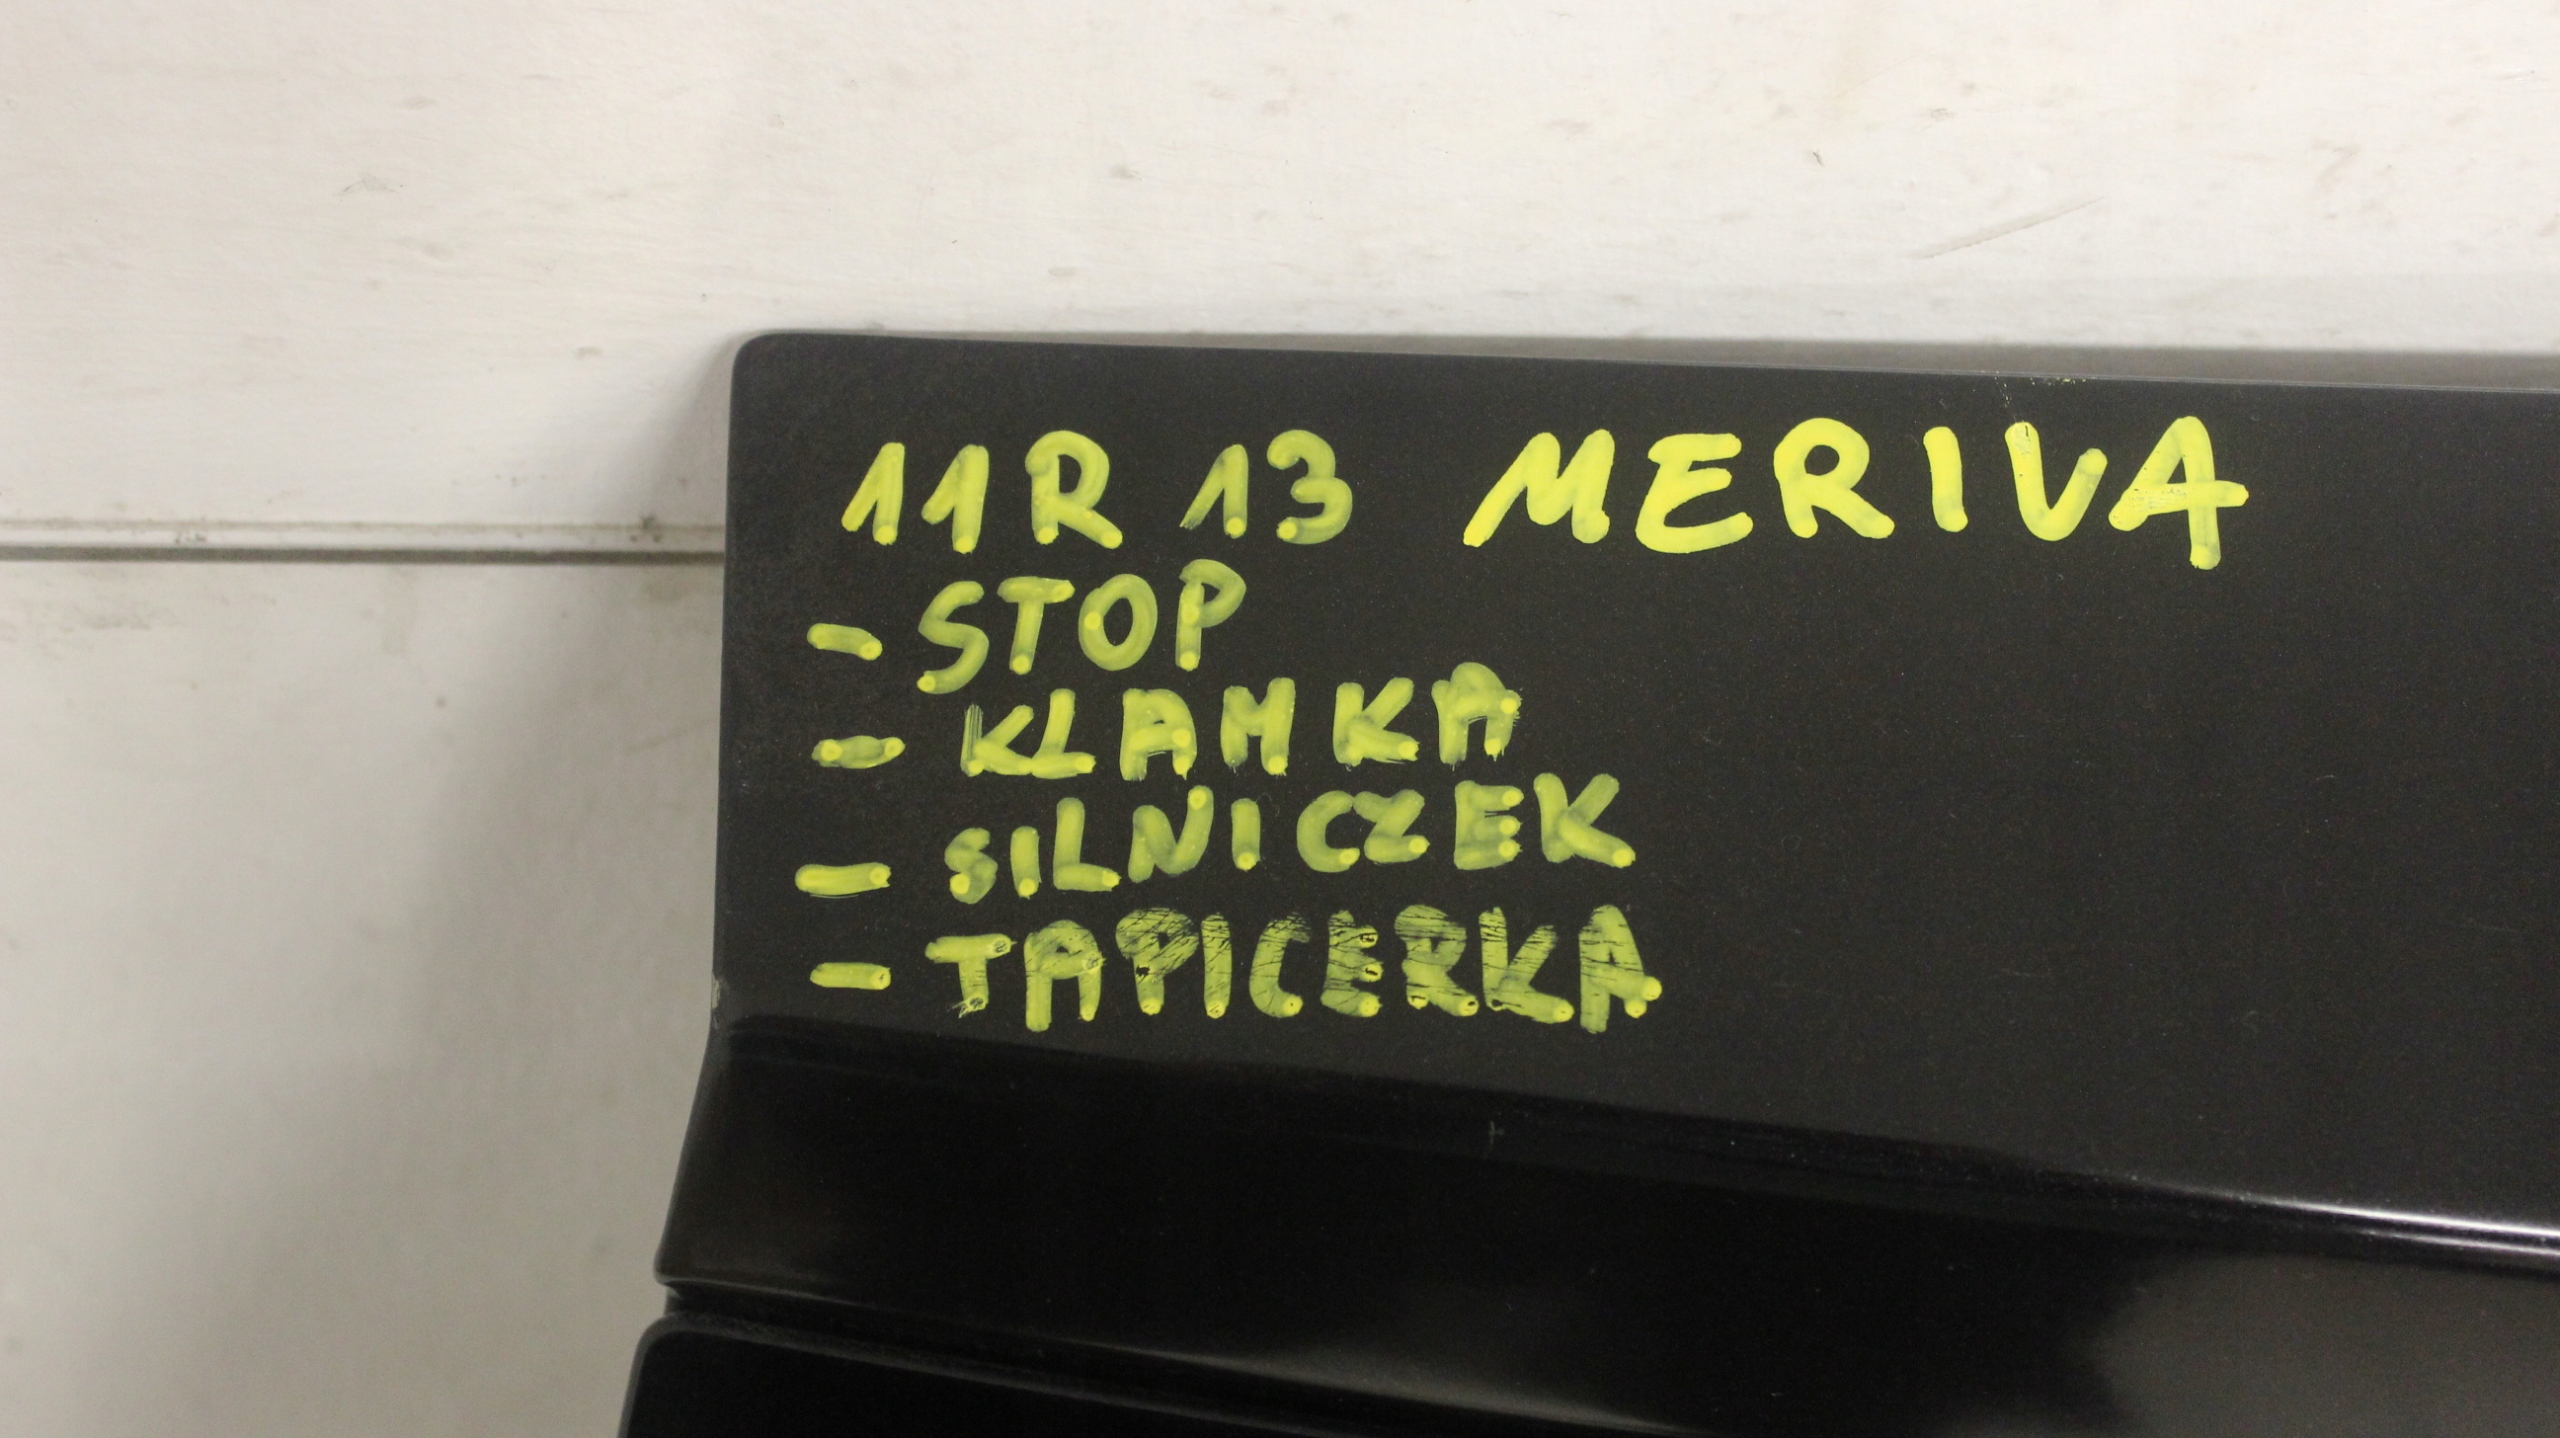 11R 13 MERIVA
- STOP
- KLAMKA
- SILNICZEK
- TAPICERKA